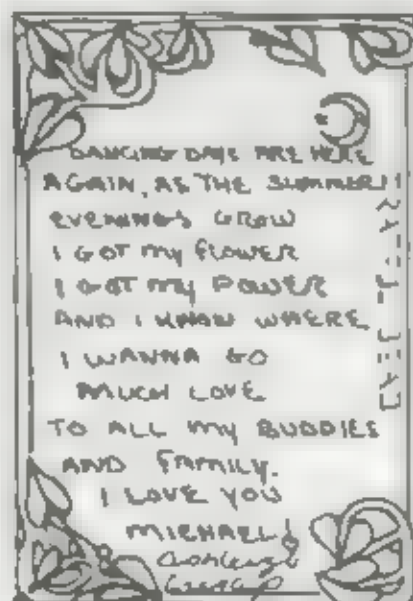 DANCING DAYS ARE HERE
AGAIN, AS THE SUMMER
EVENINGS GROW
I GOT my flOWER
I GOT my POWER
AND I KNOW WHERE
I WANNA GO
MUCH LOVE
TO ALL my BUDDIES
AND FAMILY.
I LOVE YOU
MICHAEL!
Ashley